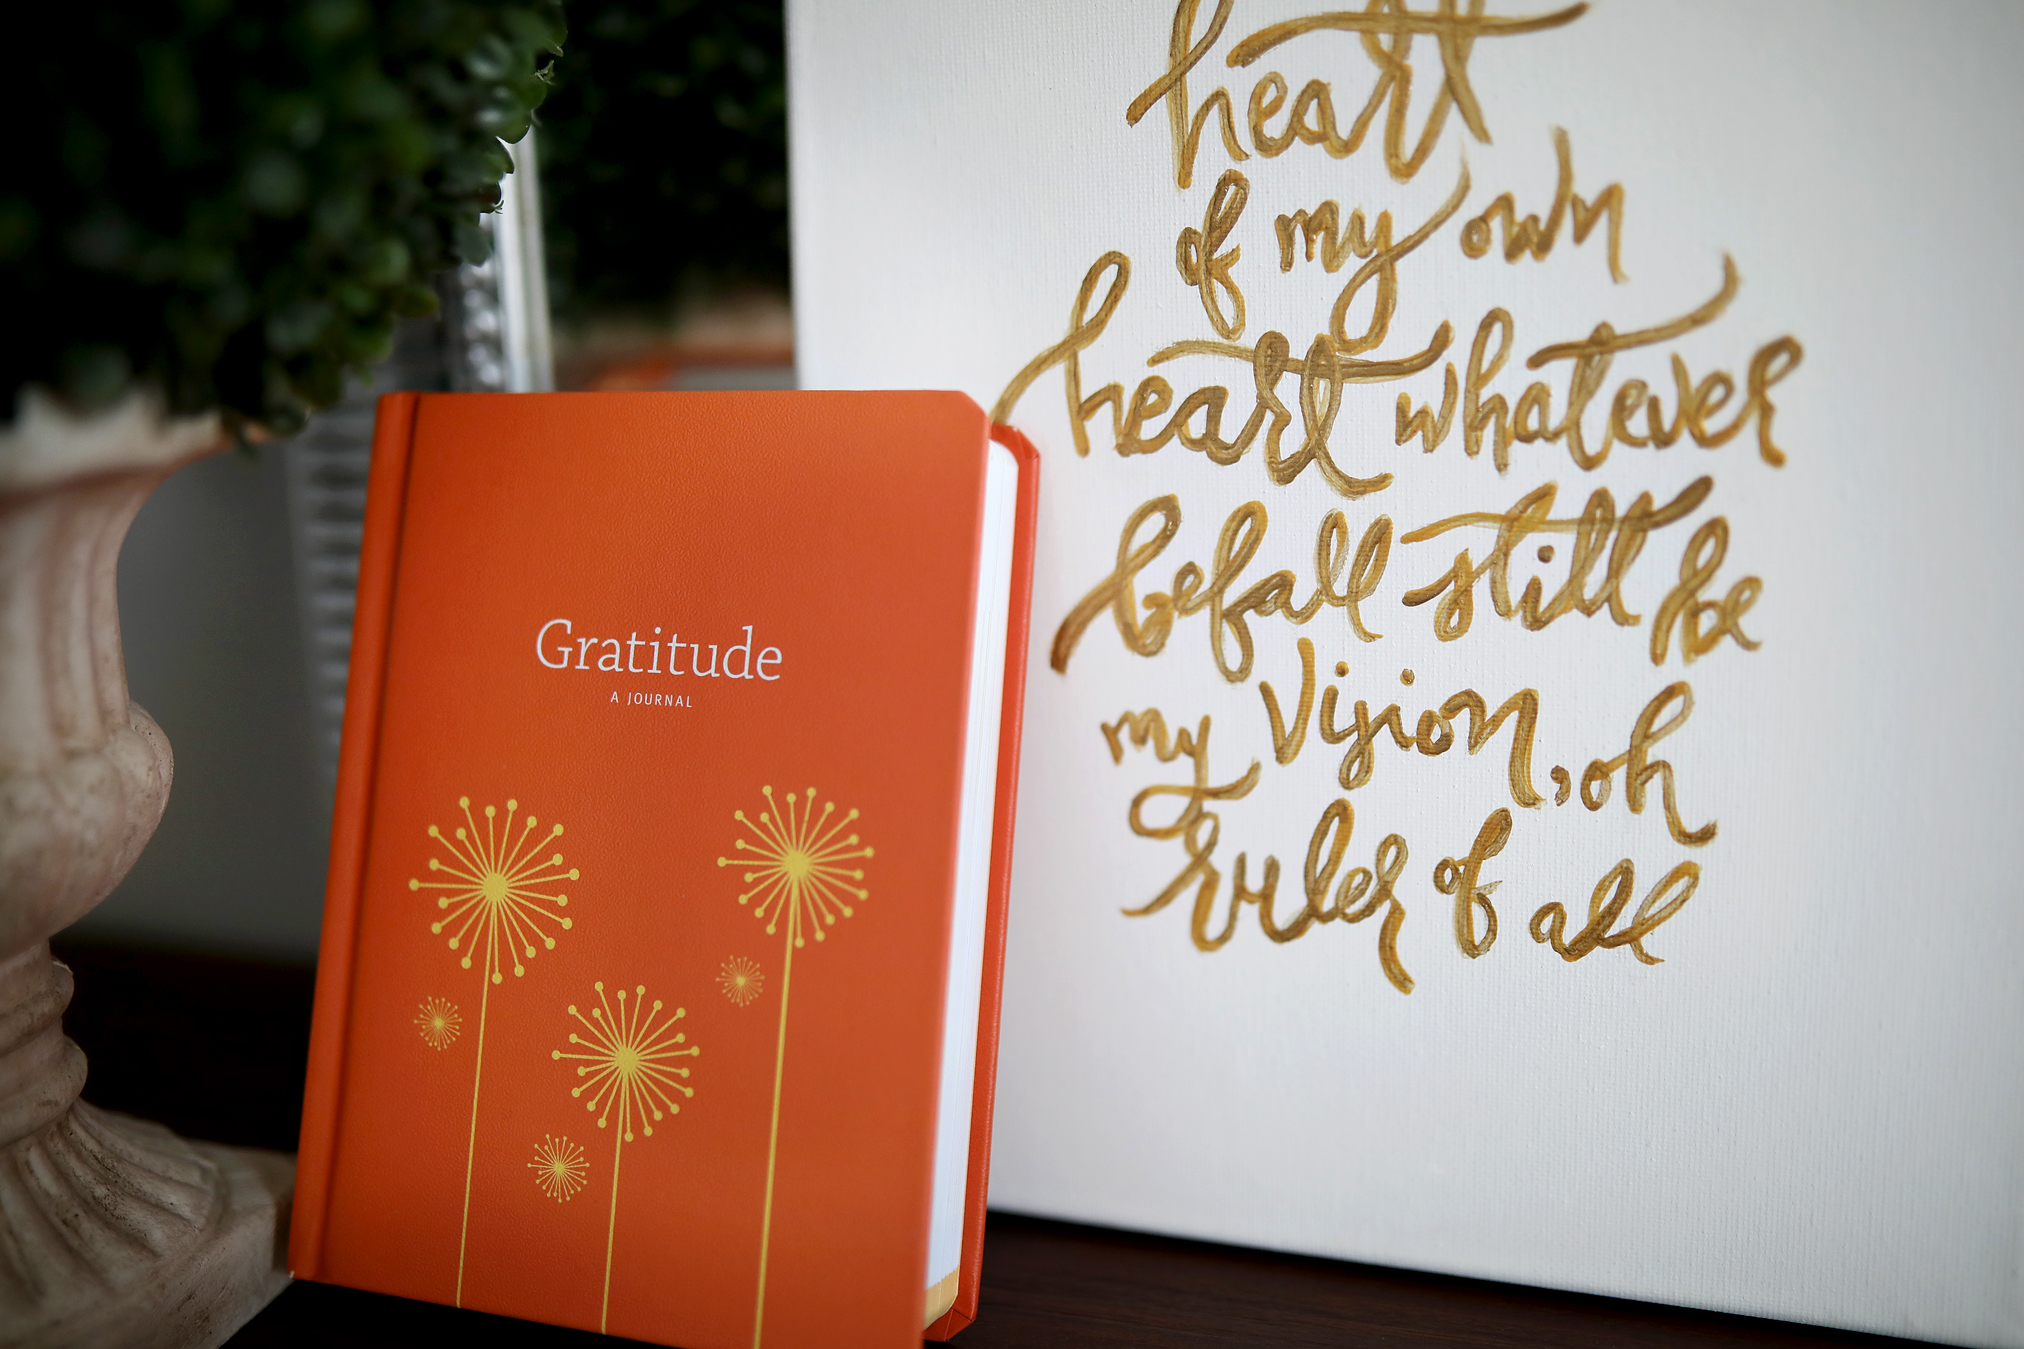 Gratitude
A JOURNAL
heart
of my own
heart whatever
befall still be
my vision, oh
ruler of all